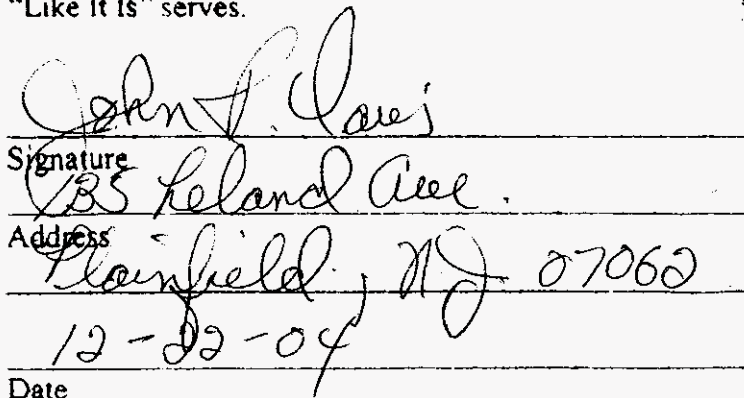 "Like It Is" serves.
John P. Davis
Signature
135 Leland Ave.
Address
Plainfield, NJ 07062
12-22-04
Date